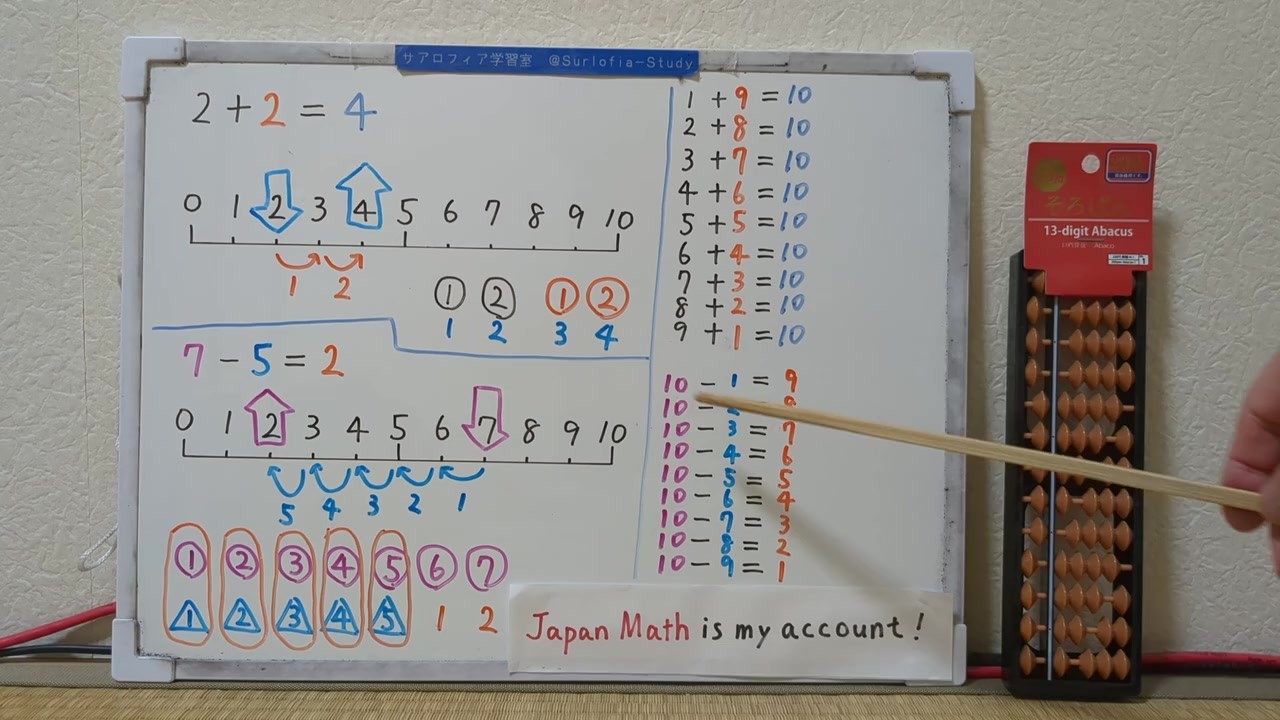 サアロフィア学習室 @Surlofia-Study
2+2=4
0 1 2 3 4 5 6 7 8 9 10
1 2
① ② ① ②
1 2 3 4
7-5=2
0 1 2 3 4 5 6 7 8 9 10
5 4 3 2 1
① ② ③ ④ ⑤ ⑥ ⑦
1 2 3 4 5 1 2
1+9=10
2+8=10
3+7=10
4+6=10
5+5=10
6+4=10
7+3=10
8+2=10
9+1=10
10-1=9
10-2
10-3=7
10-4=6
10-5=5
10-6=4
10-7=3
10-8=2
10-9=1
Japan Math is my account!
そろばん
13-digit Abacus